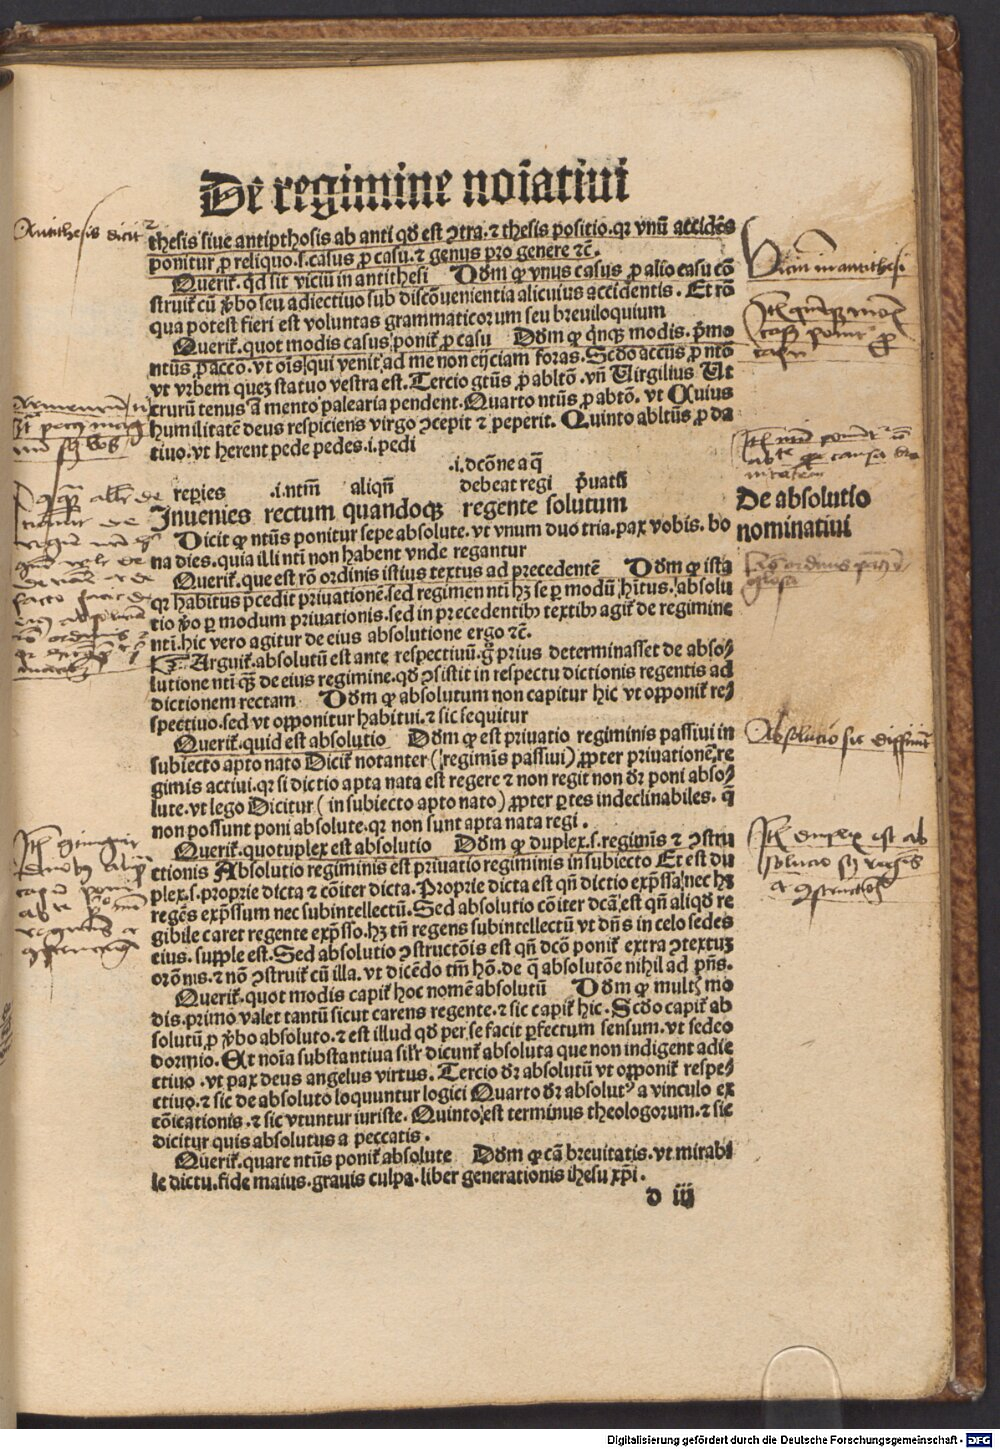 De regimine noīatiui
thesis siue antipthosis ab anti qd est ꝯtra. ⁊ thesis positio. qꝛ vnū accidēs
ponitur ꝓ reliquo .s. casus ꝓ casu. ⁊ genus pro genere ⁊c̄.
Querit᷑. qd sit viciū in antithesi Dōm ꝙ vnus casus ꝓ alio casu cō
struit᷑ cū v̄bo seu adiectiuo sub discōuenientia alicuius accidentis. Et rō
qua potest fieri est voluntas grammaticorum seu breuiloquium
Querit᷑. quot modis casus ponit᷑ ꝓ casu Dōm ꝙ qͥnqꝫ modis. pͥmo
ntūs ꝓ accō. vt oīs qui venit ad me non eijciam foras. Scdo accūs ꝓ ntō
vt vrbem quez statuo vestra est. Tercio gtūs ꝓ abltō. vn̄ Uirgilius Ut
crurū tenus a mento palearia pendent. Quarto ntūs ꝓ abtō. vt Cuius
humilitatē deus respiciens virgo ꝯcepit ⁊ peperit. Quinto abltūs ꝓ da
tiuo. vt herent pede pedes .i. pedi
.i. dcōne a q̄
reperies .i. ntm̄ aliqn̄ debeat regi pͥuatū
Inuenies rectum quandoqꝫ regente solutum
De absolutio
nominatiui
Dicit ꝙ ntūs ponitur sepe absolute. vt vnum duo tria. pax vobis. bo
na dies. quia illi ntī non habent vnde regantur
Querit᷑. que est rō ordinis istius textus ad precedentē Dōm ꝙ ista
qꝛ habitus p̄cedit priuationē. sed regimen ntī hꝫ se per modū hītus. absolu
tio v̄o per modum priuationis. sed in precedentibꝰ textibꝰ agit᷑ de regimine
ntī. hic vero agitur de eius absolutione ergo ⁊c̄.
Arguit᷑. absolutū est ante respectiuū. gͦ prius determinasset de abso-
lutione ntī qꝫ de eius regimine. qd ꝯsistit in respectu dictionis regentis ad
dictionem rectam Dōm ꝙ absolutum non capitur hic vt opponit᷑ re-
spectiuo. sed vt opponitur habitui. ⁊ sic sequitur
Querit᷑. quid est absolutio Dōm ꝙ est priuatio regiminis passiui in
subiecto apto nato Dicit᷑ notanter (regimīs passiui) ꝓpter priuationē re
gimis actiui. qꝛ si dictio apta nata est regere ⁊ non regit non dr̄ poni abso-
lute. vt lego Dicitur (in subiecto apto nato) ꝓpter ꝑtes indeclinabiles. q̄
non possunt poni absolute. qꝛ non sunt apta nata regi.
Querit᷑. quotuplex est absolutio Dōm ꝙ duplex .s. regimīs ⁊ ꝯstru
ctionis Absolutio regiminis est priuatio regiminis in subiecto Et est du
plex .s. proprie dicta ⁊ cōiter dicta. Proprie dicta est qn̄ dictio exp̄ssa nec hꝫ
regēs exp̄ssum nec subintellectū. Sed absolutio cōiter dcā est qn̄ aliqd re
gibile caret regente exp̄sso. hꝫ tn̄ regens subintellectū vt dn̄s in celo sedes
eius. supple est. Sed absolutio ꝯstructōis est qn̄ dcō ponit᷑ extra ꝯtextuꝫ
orōnis. ⁊ nō ꝯstruit᷑ cū illa. vt dicēdo tm̄ hō. de q̄ absolutōe nihil ad pn̄s.
Querit᷑. quot modis capit᷑ hoc nomē absolutū Dōm ꝙ multꝭ mo
dis. primo valet tantū sicut carens regente. ⁊ sic capit᷑ hic. Scdo capit᷑ ab
solutū ꝓ v̄bo absoluto. ⁊ est illud qd per se facit ꝑfectum sensum. vt sedeo
dormio. Et noīa substantiua silr̄ dicunt᷑ absoluta que non indigent adie
ctiuo. vt pax deus angelus virtus. Tercio dr̄ absolutū vt opponit᷑ respe-
ctiuo. ⁊ sic de absoluto loquuntur logici Quarto dr̄ absolutꝰ a vinculo ex
cōicationis. ⁊ sic vtuntur iuriste. Quinto est terminus theologorum. ⁊ sic
dicitur quis absolutus a peccatis.
Querit᷑. quare ntūs ponit᷑ absolute Dōm ꝙ cā breuitatis. vt mirabi
le dictu. fide maius. grauis culpa. liber generationis ihesu xp̄i.
d iij
Antithesis dicit᷑
Absolutio sic diffinit᷑
Digitalisierung gefördert durch die Deutsche Forschungsgemeinschaft - DFG